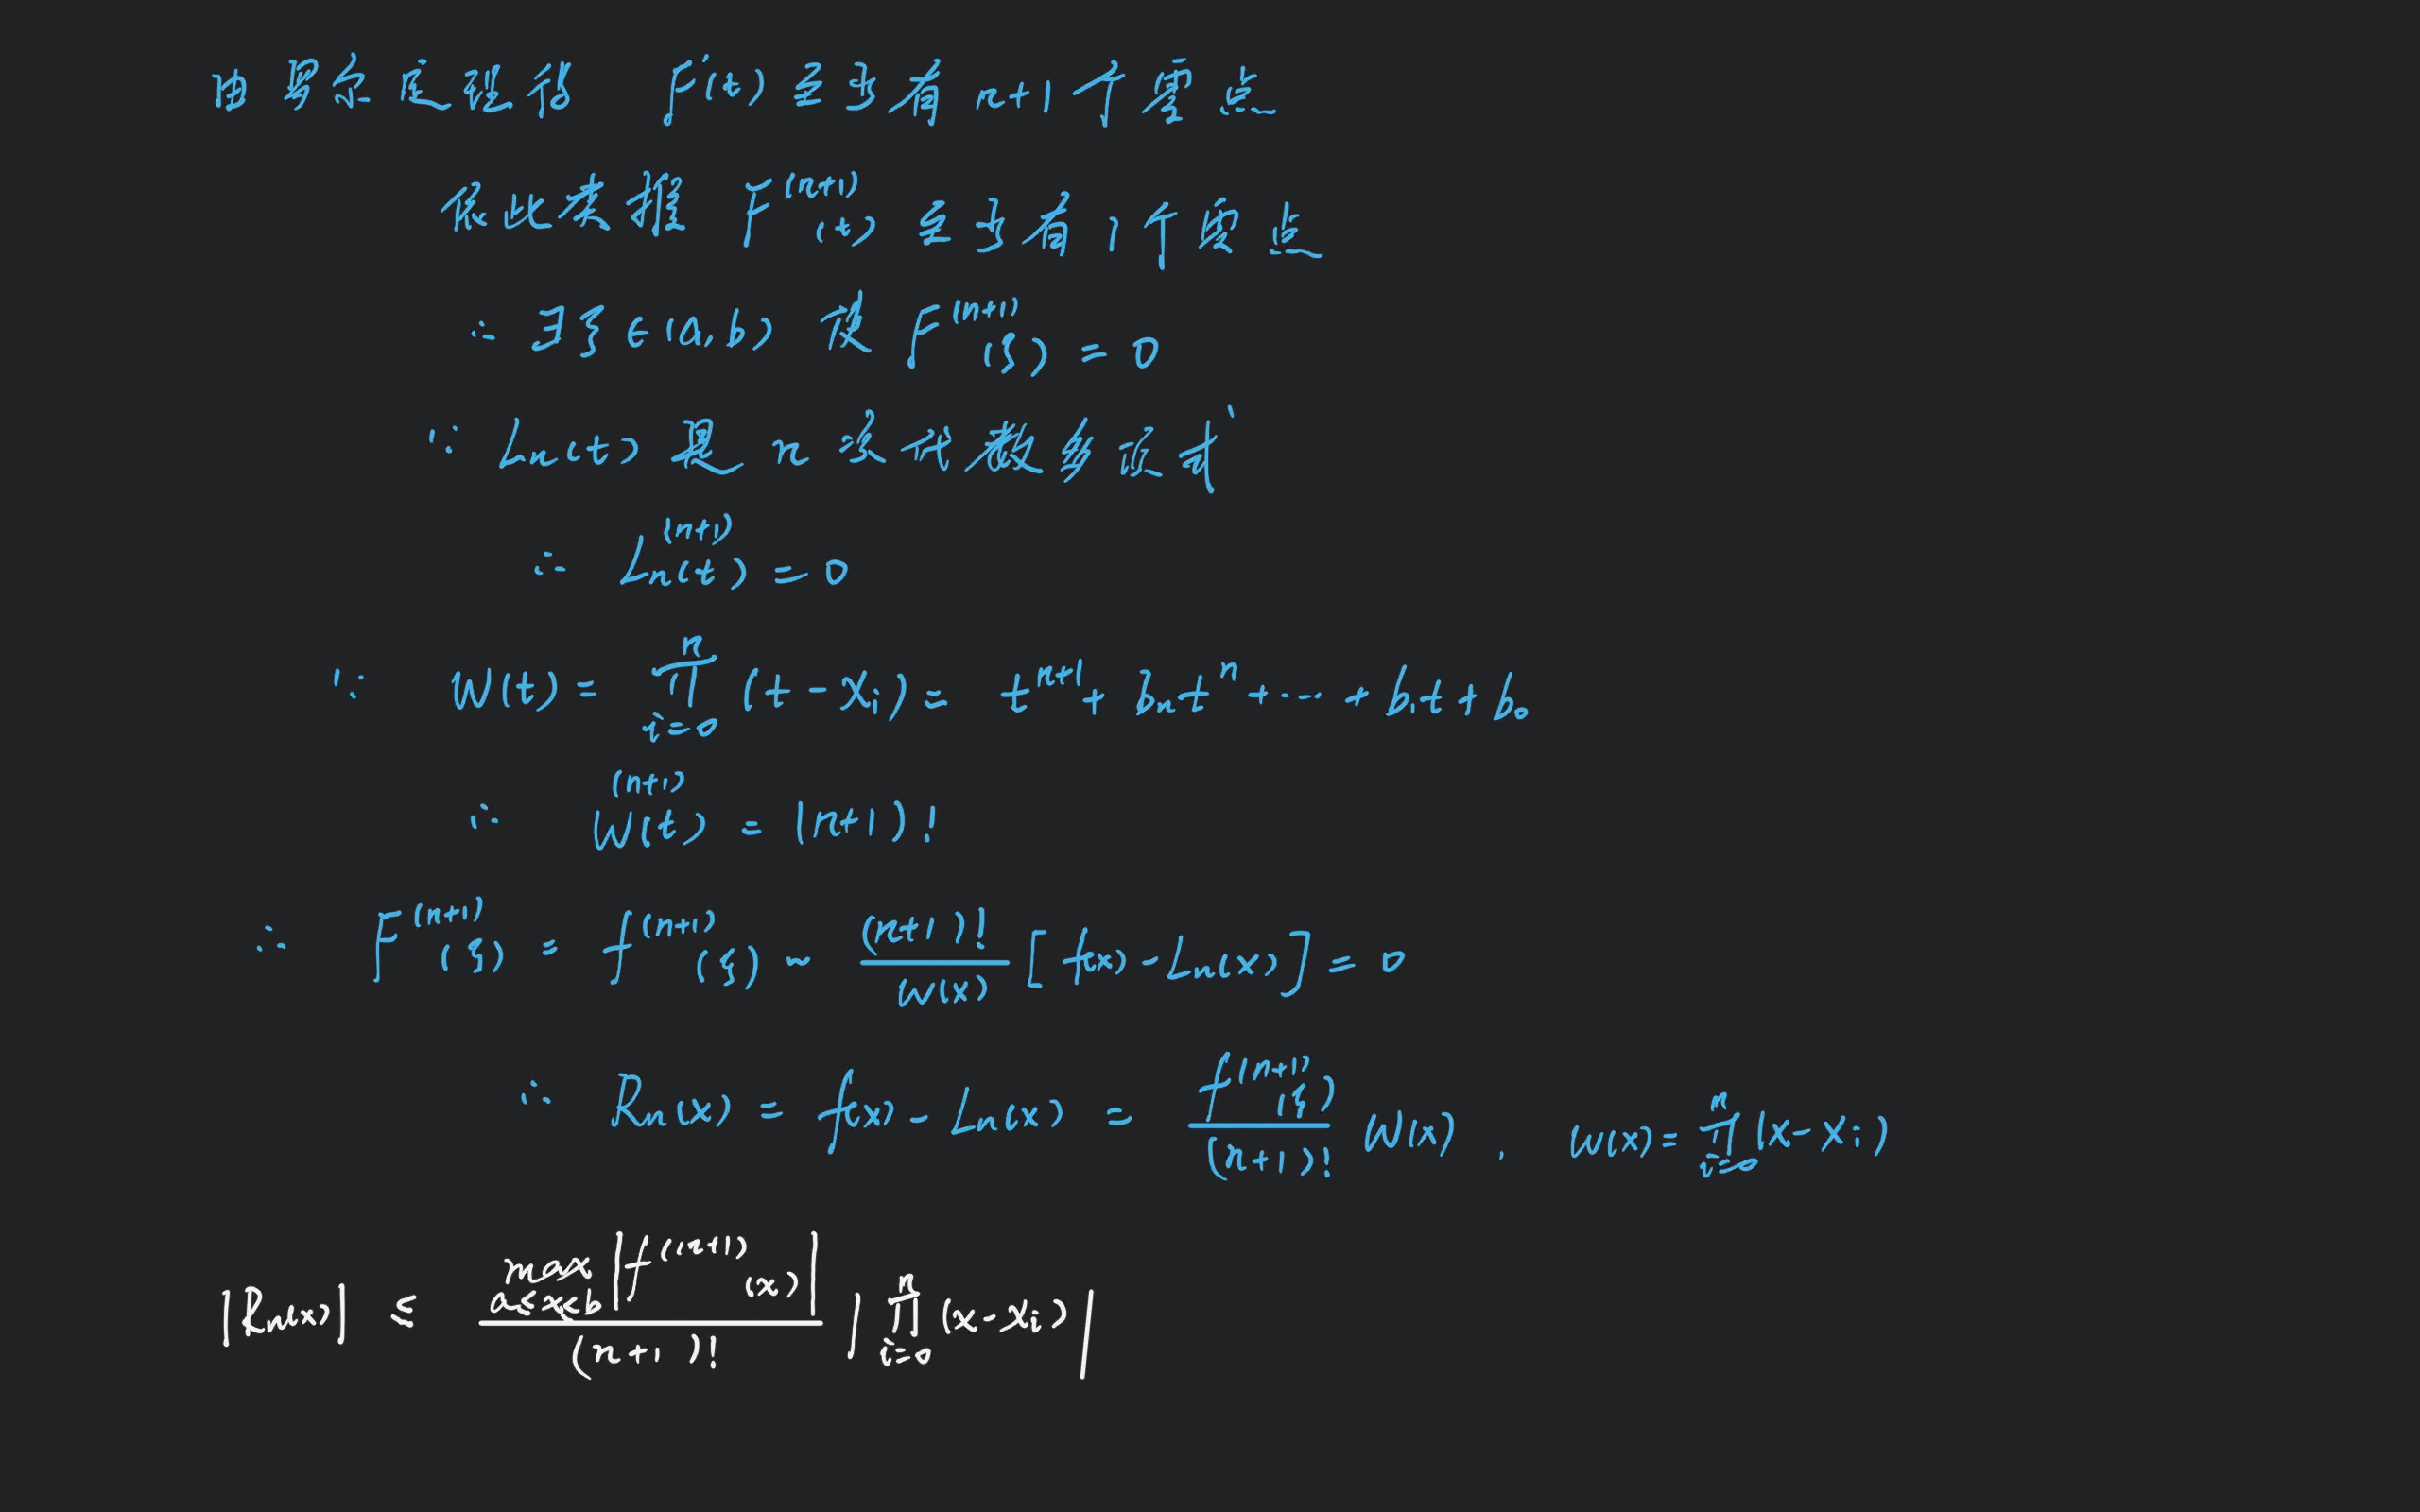 由罗尔定理得 F'(t) 至少有 n+1 个零点
依此类推 F^{(n+1)}(t) 至少有 1 个零点
∴ ∃ξ∈(a,b) 使 F^{(n+1)}(ξ) = 0
∵ Ln(t) 是 n 次代数多项式
∴ Ln^{(n+1)}(t) = 0
∵ W(t) = ∏_{i=0}^{n} (t - Xi) = t^{n+1} + bn t^n + ··· + b1t + b0
∴ W^{(n+1)}(t) = (n+1)!
∴ F^{(n+1)}(ξ) = f^{(n+1)}(ξ) - \frac{(n+1)!}{W(x)} [f(x) - Ln(x)] = 0
∴ Rn(x) = f(x) - Ln(x) = \frac{f^{(n+1)}(ξ)}{(n+1)!} W(x) , W(x) = ∏_{i=0}^{n} (x - xi)
|Rn(x)| ≤ \frac{max_{a≤x≤b} |f^{(n+1)}(x)|}{(n+1)!} |∏_{i=0}^{n} (x - xi)|